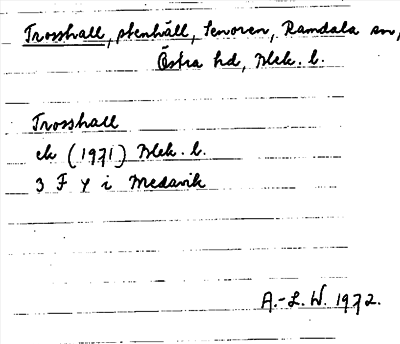 Trosshall, stenhäll, Senoren, Ramdala sn,
Östra hd, Blek. l.
Trosshall
ek (1971) Blek. l.
3 F y i Medavik
A.-L. W. 1972.